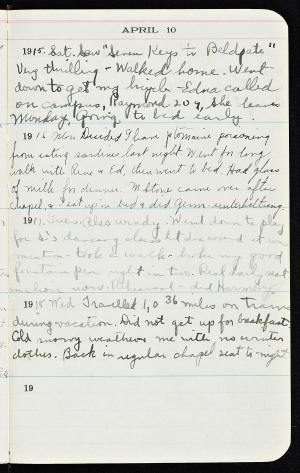 APRIL 10
1915. Sat. Saw "Seven Keys to Baldpate"
Very thrilling - Walked home. Went
down to get my bicycle - Edna called
on campus, Raymond 204, She leaves
Monday. Going to bed early.
1916 Mon. Decided I have ptomaine poisoning
from eating sardines last night. Went for long
walk with Rene & Ed, then went to bed. Had glass
of milk for dinner. M Stone came over after
chapel, & I sat up in bed & did Germ.
1917. Tues. Also windy. Went down to play
for S's dancing class but discovered it was
vacation - took a walk - broke my good
fountain pen right in two. Real
Rehearsal - did Harmony
1918 Wed Travelled 1,036 miles on train
during vacation. Did not get up for breakfast
Cold snowy weather & me with no winter
clothes. Back in regular chapel seat to-night.
19